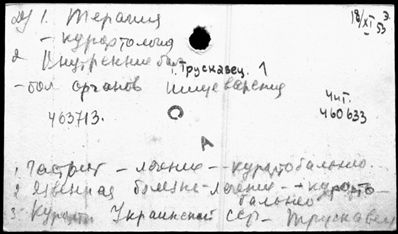 1. Терапия
18/XI 53
- курортология
2 Внутренние бол
г. Трускавец 1
- бол органов пищеварения
Чит.
463713.
460633
А
1. Гастрит - лечение - курортобальнео
2. Язвенная болезнь - лечение - курорто-
бальнео
3. Курорты Украинской ССР - Трускавец